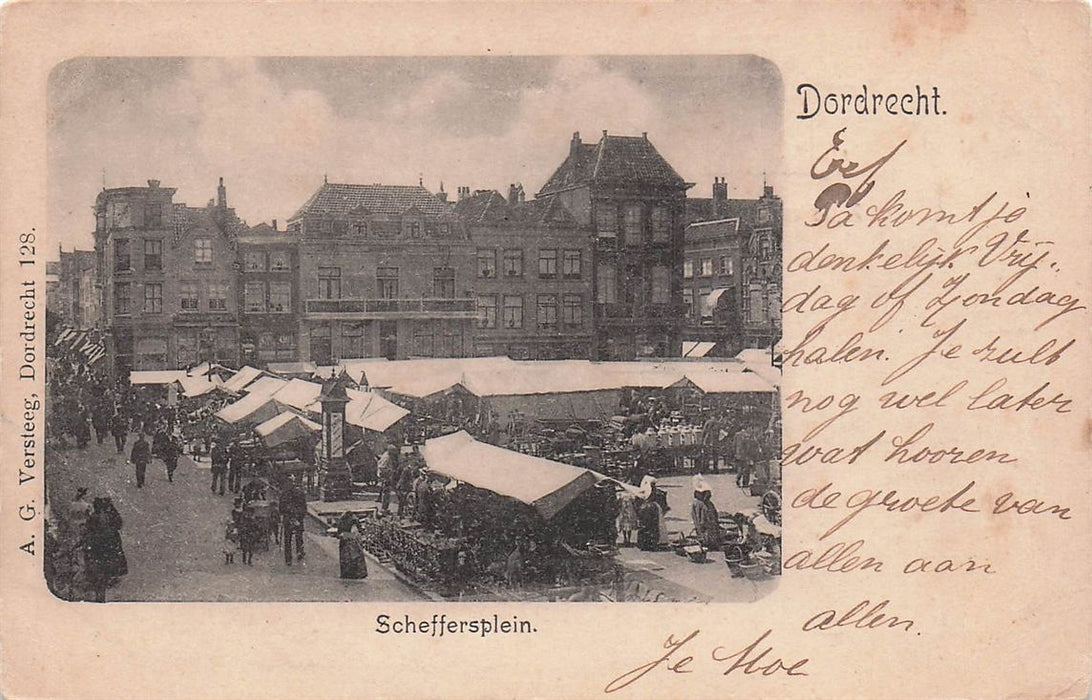 Dordrecht.
Pa komt je
denkelijk Vrij-
dag of Zondag
halen. Je zult
nog wel later
wat hooren
de groete van
allen aan
allen.
Je Moe
Scheffersplein.
A. G. Versteeg, Dordrecht 128.